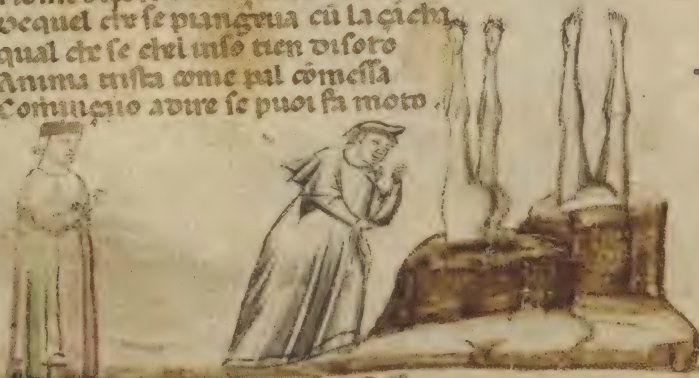 vequel che se piangeua cū la çācha
qual che se chel inso tien disoto
Anima trista come pal cōmessa
Comīçuo adire se puoi fa moto .